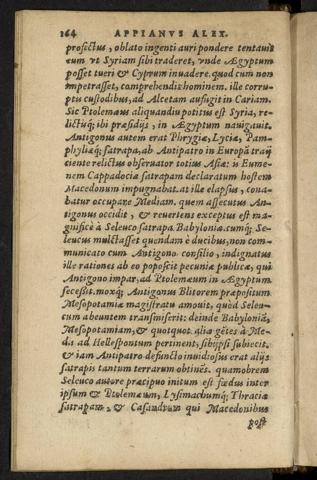 164 APPIANVS ALEX.
profectus, oblato ingenti auri pondere tentauit
eum vt Syriam sibi traderet, vnde Ægyptum
posset tueri & Cyprum inuadere. quod cum non
impetrasset, comprehendit hominem. ille corru-
ptis custodibus, ad Alcetam aufugit in Cariam.
Sic Ptolemæus aliquandiu potitus est Syria, re-
lictisq́; ibi præsidijs, in Ægyptum nauigauit.
Antigonus autem erat Phrygiæ, Lyciæ, Pam-
phyliæq́; satrapa, ab Antipatro in Europã traij
ciente relictus obseruator totius Asiæ: is Eume-
nem Cappadociæ satrapam declaratum hostem
Macedonum impugnabat. at ille elapsus, cona-
batur occupare Mediam. quem assecutus An-
tigonus occidit, & reuertens exceptus est ma-
gnificè à Seleuco satrapa Babyloniæ. cumq́; Se-
leucus mulctasset quendam è ducibus, non com-
municato cum Antigono consilio, indignatus
ille rationes ab eo poposcit pecuniæ publicæ, qui
Antigono impar, ad Ptolemæum in Ægyptum
secessit. moxq́; Antigonus Blitorem præpositum
Mesopotamiæ magistratu amouit, quòd Seleu-
cum abeuntem transmiserit: deinde Babyloniã,
Mesopotamiam, & quotquot aliæ gẽtes à Me-
dia ad Hellespontum pertinent, sibijpsi subiecit.
& iam Antipatro defuncto inuidiosus erat alijs
satrapis tantum terrarum obtinẽs. quamobrem
Seleuco autore præcipuo initum est fœdus inter
ipsum & Ptolemæum, Lysimachumq́; Thraciæ
satrapam, & Casandrum qui Macedonibus
post